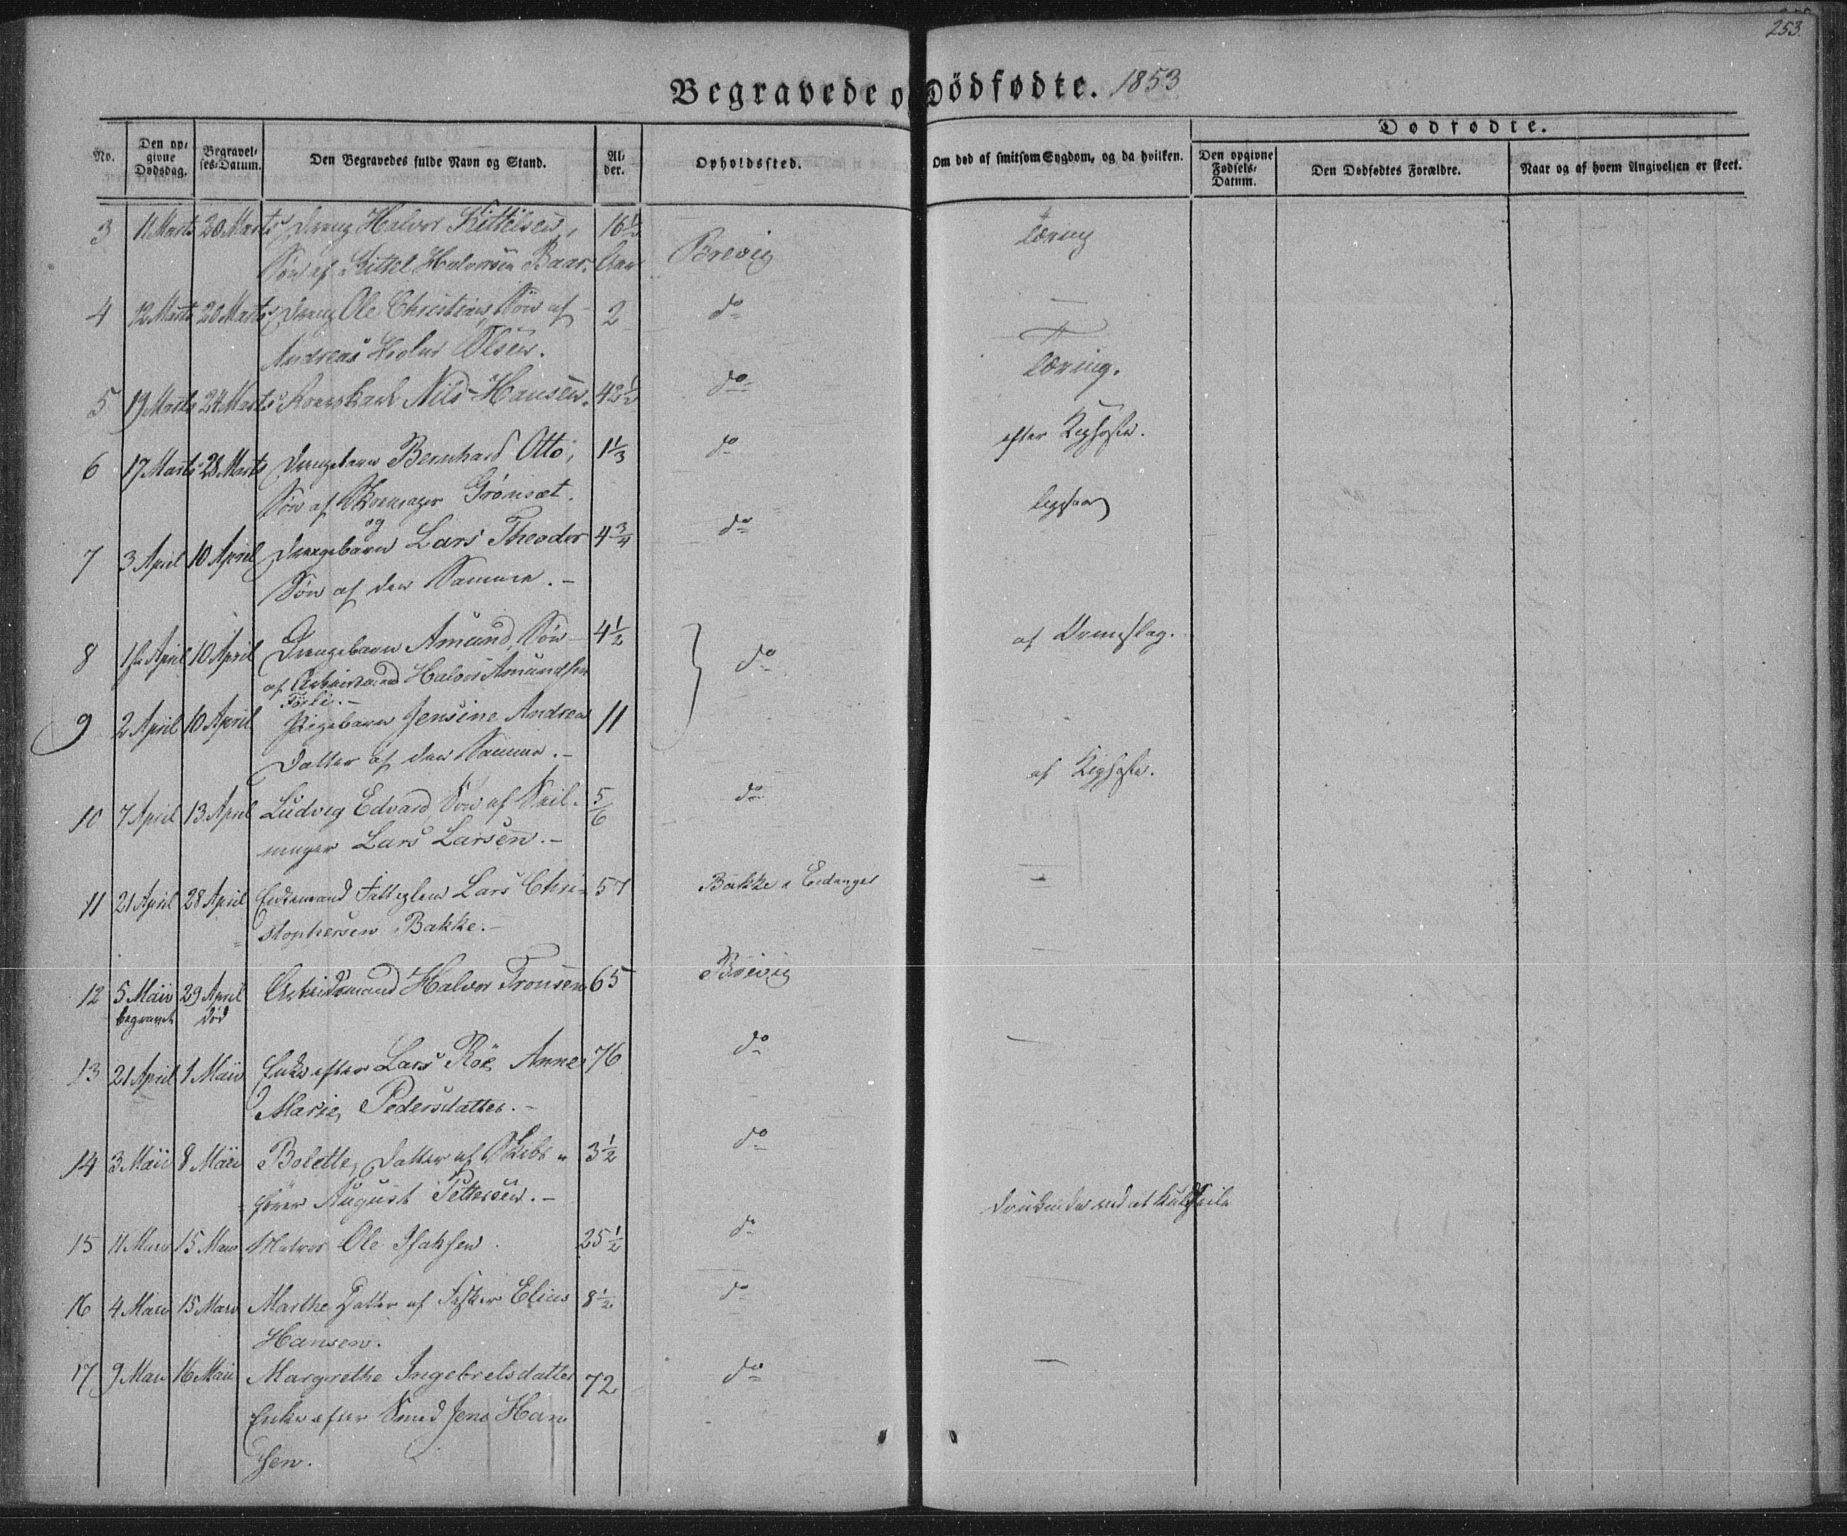 253.
Begravede o Dödfødte. 1853
No.
Den op-
givne
Dødsdag.
Begravel-
ses-Datum.
Den Begravedes fulde Navn og Stand.
Al-
der.
Opholdssted.
Om død af smitsom Sygdom, og da hvilken.
Dødfødte.
Den opgivne
Fødsels-
Datum.
Den Dødfødtes Forældre.
Naar og af hvem Angivelsen er skeet.
3 11 Marts 20 Marts Dreng Halvor Kittilsen, 16½ Tæring
Søn af Kittel Halvorsen Baar. Aar Brevig
4 12 Marts 20 Marts Dreng Ole Christian, Søn af 2 do —
Andreas Olsen.
5 19 Marts 24 Marts Nils Hansen. 42½ do Tæring.
6 17 Marts 28 Marts Drengebarn Bernhard Otto, 1⅓ do efter Kighoste.
Søn af Skomager Grønsæt.
og
7 3 April 10 April Drengebarn Lars Theodor 4¾ do
Søn af den Samme. –
8 1ste April 10 April Drengebarn Amund, Søn 4½ do af
af Arbeidsmand Halvor Amundsen
9 2 April 10 April Pigebarn Jensine Andrea 11
Datter af den Samme. –
10 7 April 13 April Ludvig Edvard Søn af Seil- 5/6 do af Kighoste.
mager Lars Larsen. –
11 21 April 28 April Lars Chri- 57 Bakke i Eidanger —
stophersen Bakke. –
12 5 Maii 29 April Arbeidsmand Halvor Tronsen 65 Brevig —
begravet død
13 21 April 1 Maii Enke efter Lars Röe Anne 76 do —
Marie, Pedersdatter. –
14 3 Maii 8 Maii Bolette, Datter af Skibs- 3½ do —
fører August Pettersen. –
15 11 Maii 15 Maii Matros Ole Isaksen. 25½ do
16 4 Maii 15 Maii Marthe Datter af Fisker Elias 8½ do —
Hansen.
17 9 Maii 16 Maii Margrethe Ingebretsdatter 72 do —
Enke efter Smed Jens Han-
sen.